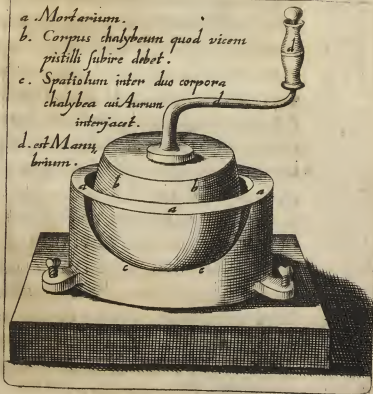 a. Mortarium.
b. Corpus chalybeum quod vicem
pistilli subire debet.
c. Spatiolum inter duo corpora
chalybea cui Aurum
interjacet.
d. est Manu
brium.
d
d
b b
a a
a
c c